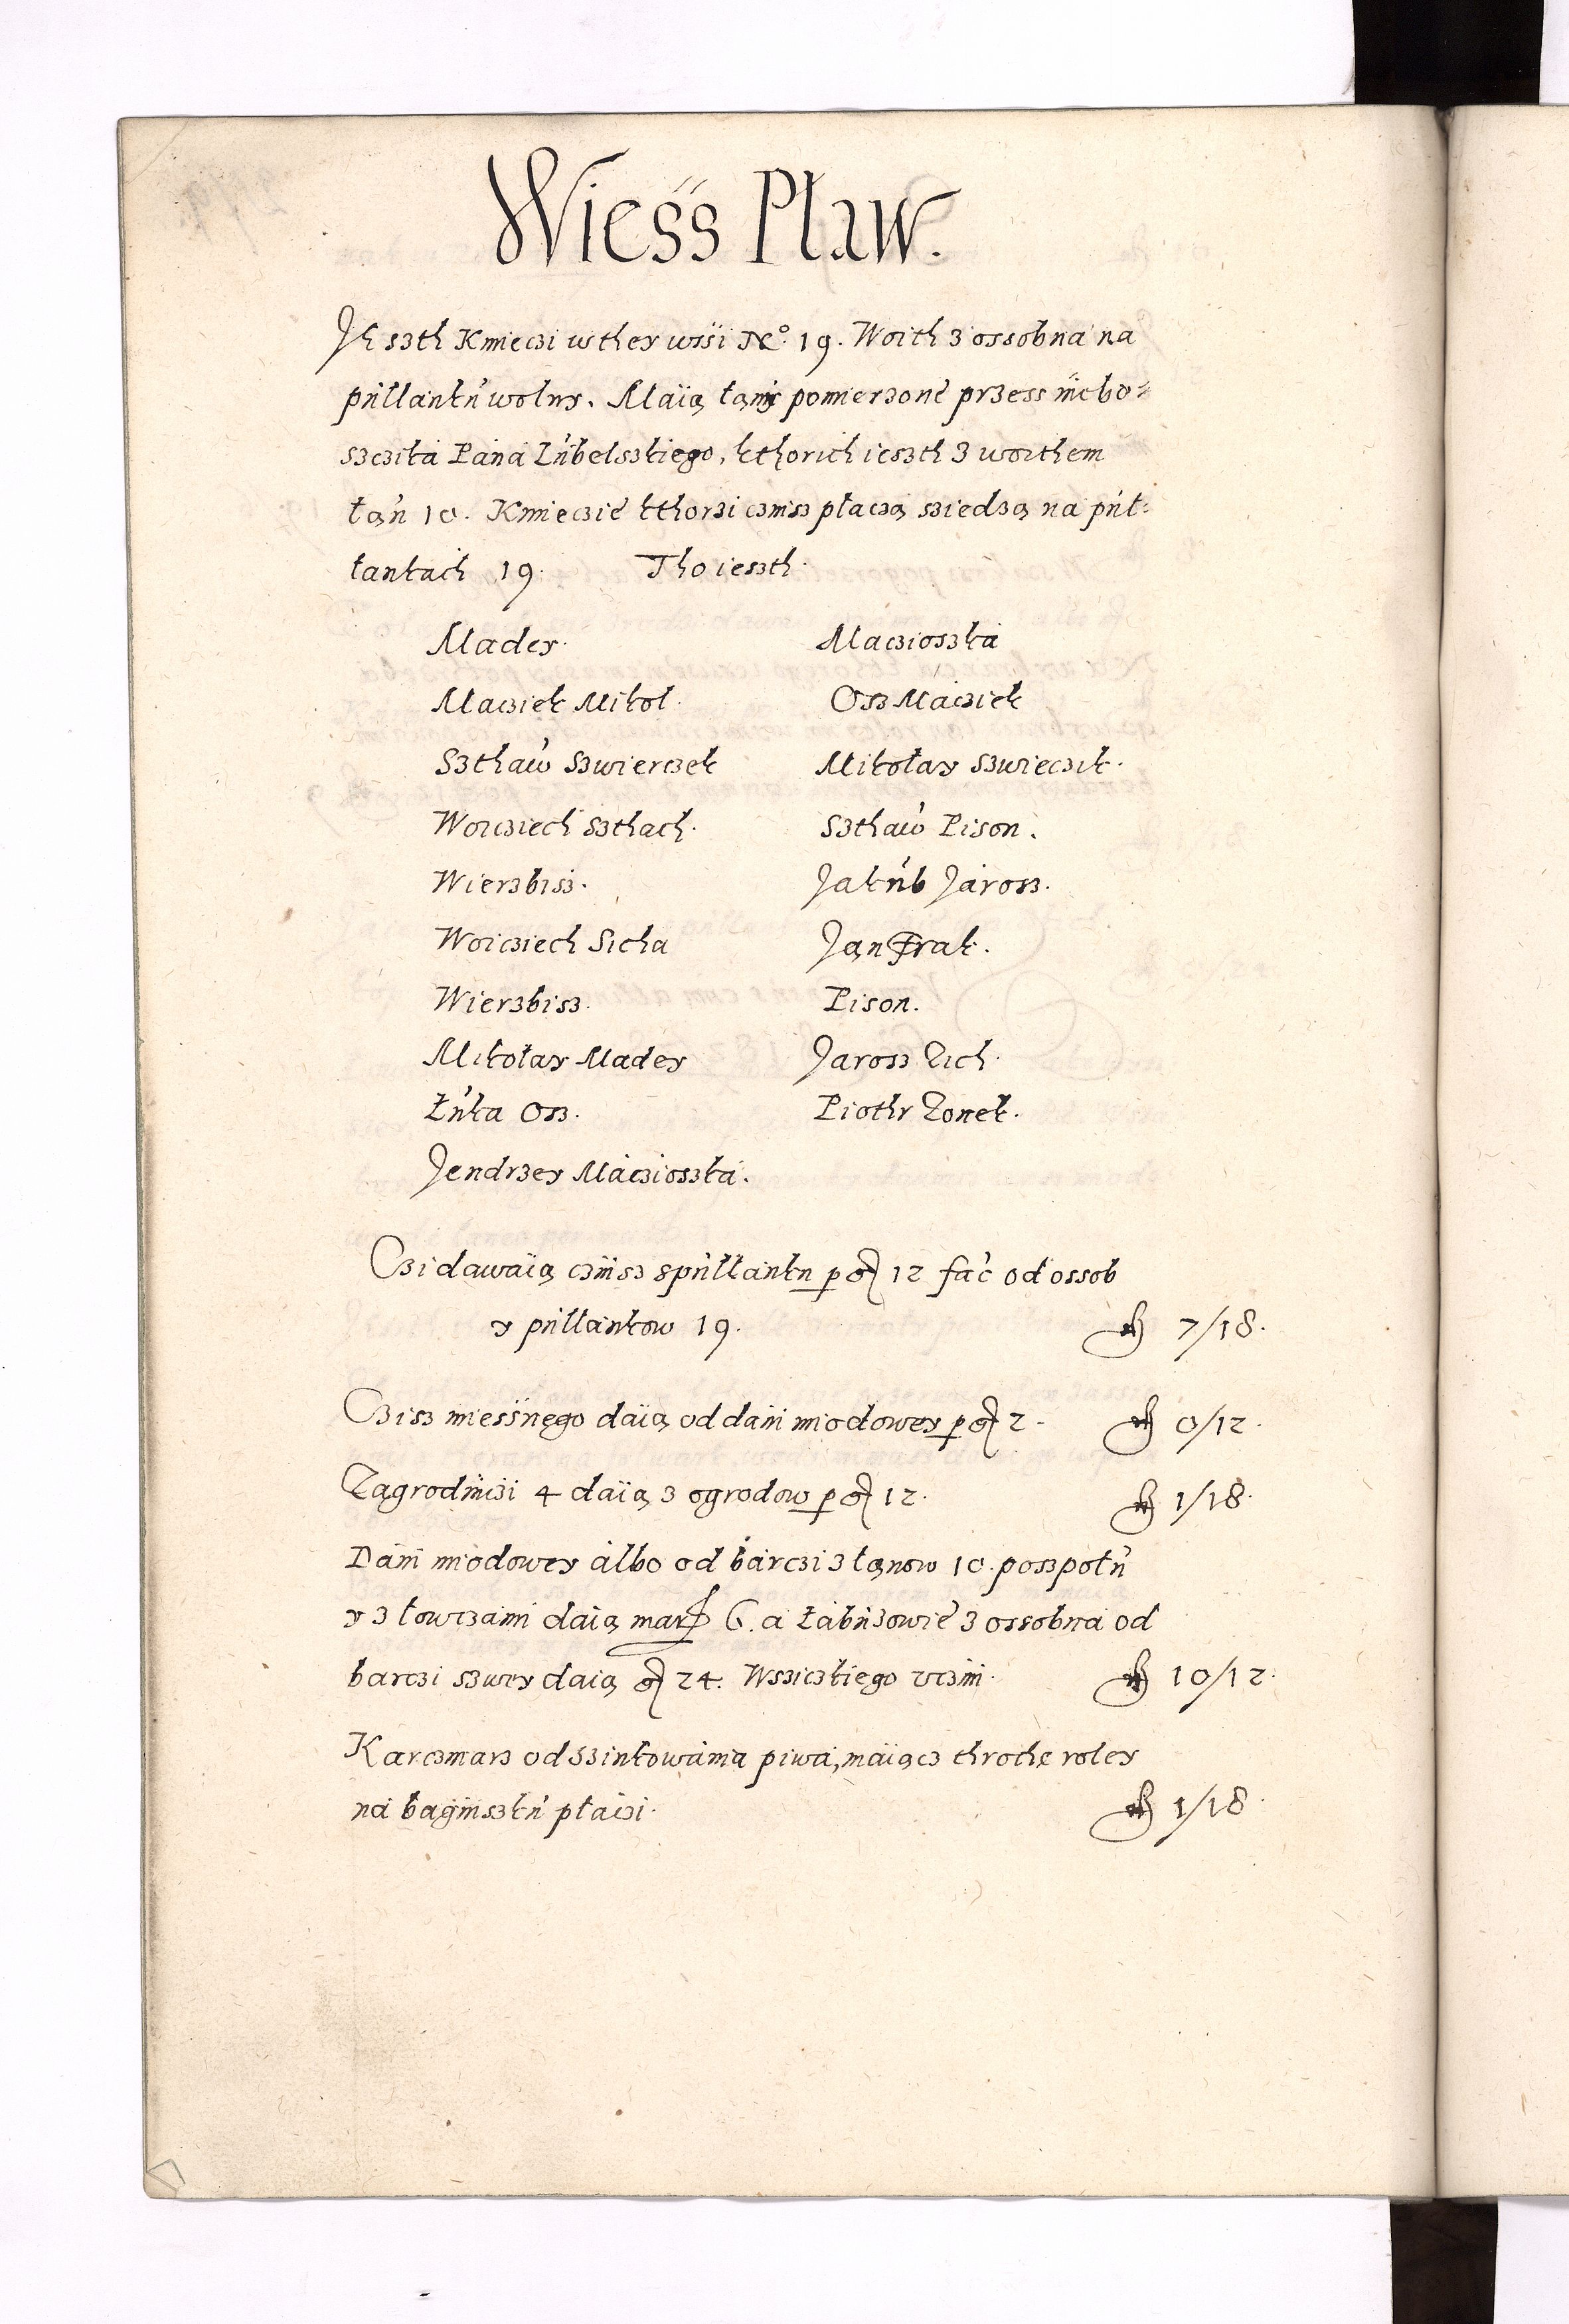 Wieśś Pław.
Jeszth Kmieczi wthey wśśi No. 19. Woith z ossobna na
pułłanku wolny. Maią łany pomierzone przess niebo-
szczika Pana Lubelszkiego, kthorich ieszth z woithem
łan 10. Kmieczie kthorzi czinsz płaczą sziedzą na puł-
łankach 19. Tho ieszth.
Madey. Maczioszka
Macziek Mikoł. Osz Macziek
Szthaw Szwierczek Mikołay Szwieczik.
Woicziech Szthach. Szthaw Pison.
Wierzbisz. Jakub Jarosz.
Woicziech Sicha Jan Frak.
Wierzbisz. Pison.
Mikołay Madey Jarosz Zich.
Łuka Osz. Piothr Zonek.
Jendrzey Maczioszka.
Czi dawaią czinsz spułłanku per gr 12 fac od ossob
y pułłankow 19. 7/18.
Czisz miesśnego daią od dani miodowey per gr 2. 0/12.
Zagrodniczi 4 daią z ogrodow per gr 12. 1/18.
Dani miodowey albo od barczi z łanow 10. poszpołu
y z łowczami daią mar 6. a Łabuzowie z ossobna od
barczi szwey daią gr 24. Wsziczkiego vczini. 10/12.
Karczmarz od szinkowania piwa, maiącz throche roley
na bagniszku płaczi. 1/18.